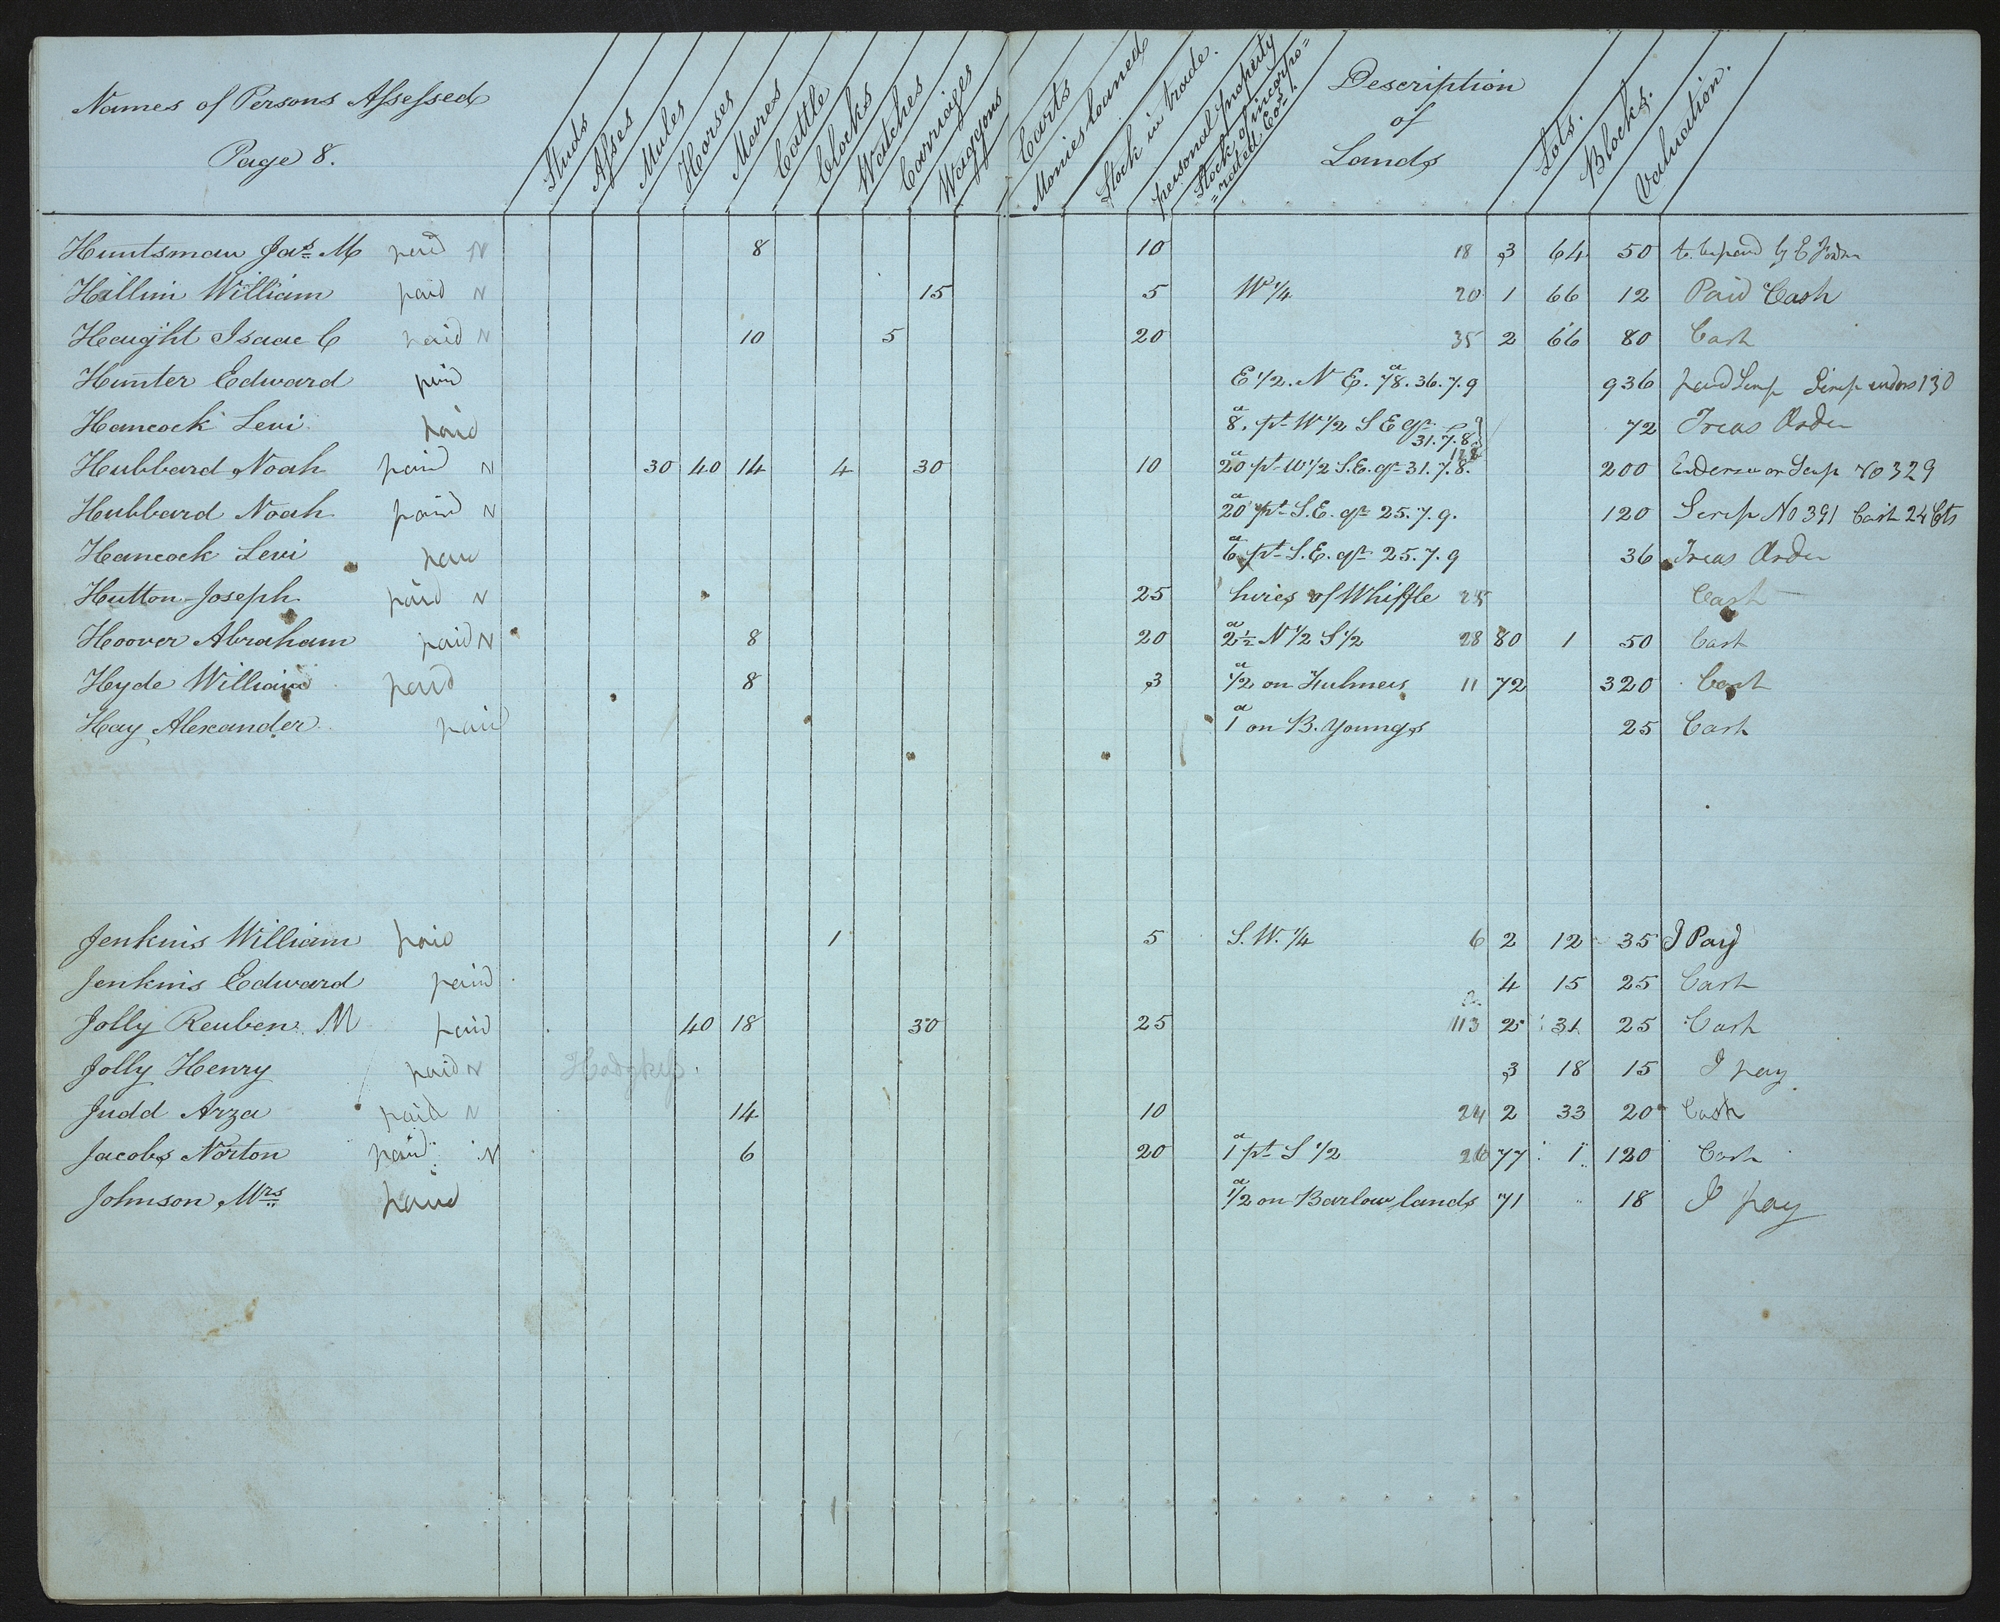 Names of Persons Assessed
Page 8.
Studs Asses Mules Horses Mares Cattle Clocks Watches Carriages Waggons Carts Monies loaned Stock in trade. personal property Stock of incorpo= =rated Cos. Description of Lands Lots. Blocks. Valuation.
Huntsman Jas M paid N 8 10 18 3 64 50
William paid N 15 5 W 1/4 20 1 66 12 Paid Cash
Haight Isaac C paid N 10 5 20 35 2 66 80 Cash
Hunter Edward paid E 1/2. N E. 78.a 36.7.9 936 paid Scrip Scrip 130
Hancock Levi paid 8.a pt W 1/2 S E qr 31.7.8 72 Treas Order
Hubbard Noah paid N 30 40 14 4 30 10 20a pt W 1/2 S.E. qr 31.7.8. 200 on Scrip No 329
Hubbard Noah paid N 20a pt S.E. qr 25.7.9. 120 Scrip No 391 Cash 24 Cts
Hancock Levi paid 6a pt S.E. qr 25.7.9 36 Treas Order
Hutton Joseph paid N 25 hires of Whiffle 25 Cash
Hoover Abraham paid N 8 20 2 1/2a N 1/2 S 1/2 28 80 1 50 Cash
Hyde William paid 8 3 1/2a on Fulmers 11 72 320 Cash
Hay Alexander paid 1a on B. Youngs 25 Cash
Jenkins William paid 1 5 S.W. 1/4 6 2 12 35 I Pay
Jenkins Edward paid 4 15 25 Cash
Jolly Reuben M paid 40 18 30 25 113 2 31 25 Cash
Jolly Henry paid N 3 18 15 I pay
Judd Arza paid N 14 10 24 2 33 20 Cash
Jacobs Norton paid N 6 20 1a pt S 1/2 26 77 1 120 Cash
Johnson Mrs paid 1/2a on Barlow lands 71 " 18 I pay